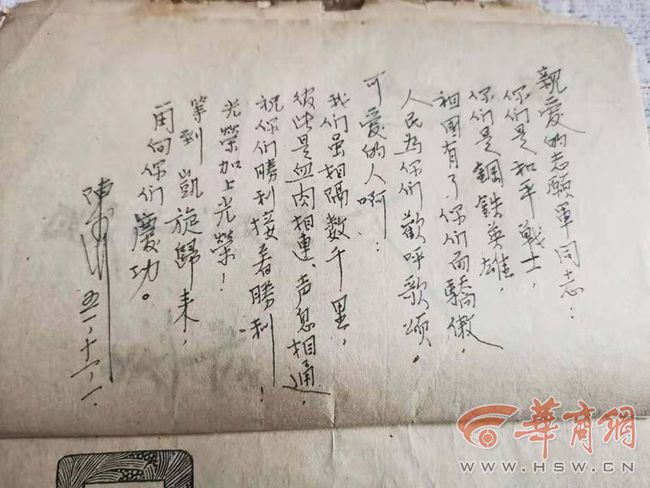 親愛的志願軍同志：
你们是和平戰士，
你们是鋼鉄英雄，
祖國有了你们而驕傲，
人民為你们歡呼歌頌，
可爱的人啊：
我们虽相隔数千里，
彼此是血肉相連、声息相通，
祝你们勝利接着勝利！
光榮加上光榮！
等到凱旋歸来，
再向你们慶功。
陳
五一，十一，一
華商網
WWW.HSW.CN